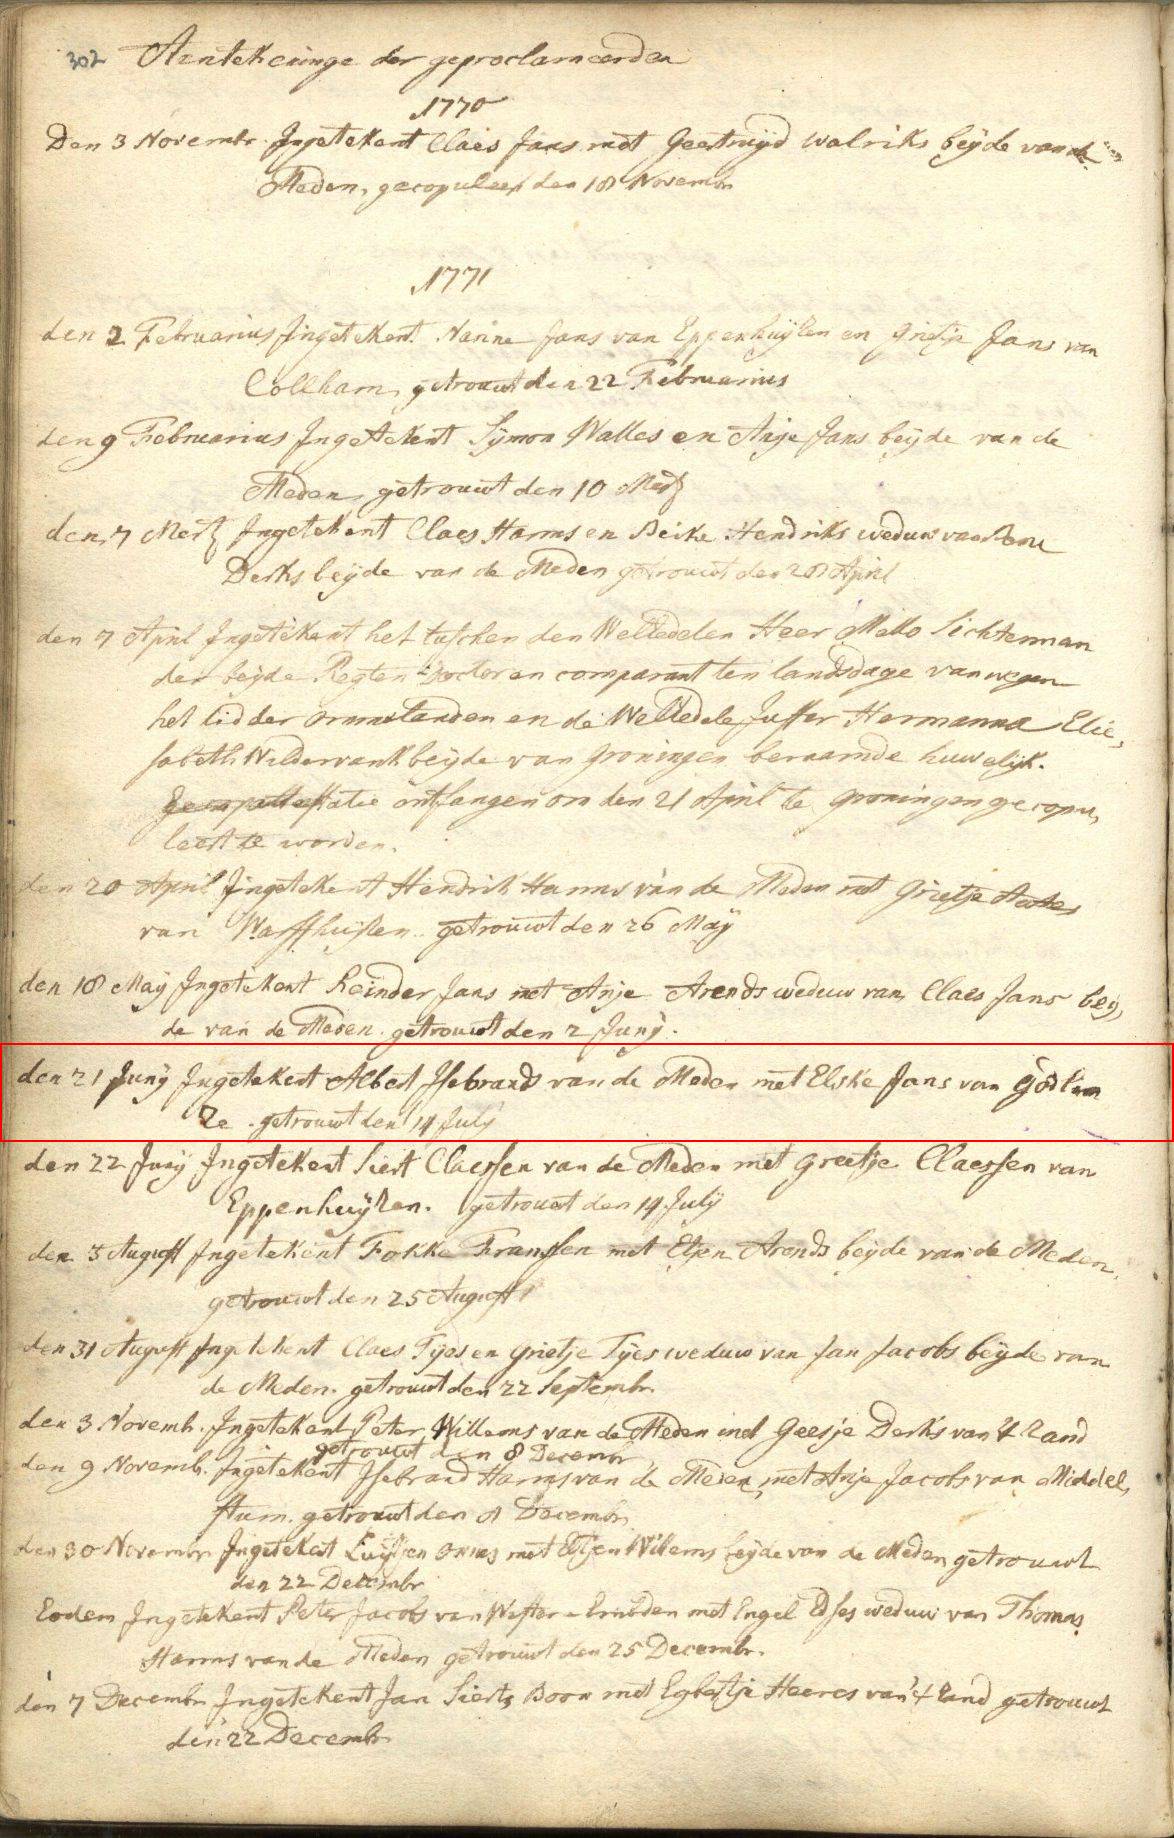 302 Aentekeninge der geproclameerden
1770
Den 3 Novembr. Ingetekent Claes Jans met Geertruyd Walriks beyde van de
Meden, gecopuleert den 18 Novembr
1771
den 2 Februarius Ingetekent Nanne Jans van Eppenhuyzen en Grietje Jans van
Collham, getrouwt den 22 Februarius
den 9 Februarius Ingetekent Symon Walles en Anje Jans beyde van de
Meden, getrouwt den 10 Mertz
den 7 Mertz Ingetekent Claes Harms en Hendriks weduw van
Derks beyde van de Meden getrouwt den 28 April
den 7 April Ingetekent het tusschen den WelEedelen Heer Mello Sichterman
der beyde Regten Doctor en comparant ten landsdage van wegen
het lid der ommelanden en de WelEdele Juffer Hermanna Elie,
sabeth Wildervank beyde van Groningen beraamde huwelijk.
ontfangen om den 21 April te Groningen gecopu,
leert te worden.
den 20 April Ingetekent Hendrik Harms van de Meden met Grietje
van Warffhuisen. getrouwt den 26 May
den 18 May Ingetekent Reinder Jans met Anje Arends weduw van Claes Jans bey,
de van de Meden. getrouwt den 2 Juny.
den 21 Juny Ingetekent Albert Isebrands van de Meden met Elske Jans van Godlin
ze. getrouwt den 14 July
den 22 Juny Ingetekent Siert Claessen van de Meden met Greetje Claessen van
Eppenhuyzen. getrouwt den 14 July
den 3 August Ingetekent Fokke Franssen met Etjen Arends beyde van de Meden.
getrouwt den 25 August
den 31 August Ingetekent Claes Tyes en Grietje Tyes weduw van Jan Jacobs beyde van
de Meden. getrouwt den 22 Septembr.
den 3 Novemb. Ingetekent Peter Willems van de Meden met Geesje Derks van 't Zand
getrouwt den 8 Decembr
den 9 Novemb. Ingetekent Isebrand Harms van de Meden, met Anje Jacobs van Middel,
stum. getrouwt den 8 Decembr.
den 30 Novembr Ingetekent Luytjen Onnes met Etjen Willems beyde van de Meden getrouwt
den 22 Decembr
Eodem Ingetekent Peter Jacobs van Wester-Embden met Engel Edses weduw van Thomas
Harms van de Meden getrouwt den 25 Decembr.
den 7 Decembr Ingetekent Jan Sierts Boon met Egbertje Heeres van 't Zand getrouwt
den 22 Decembr